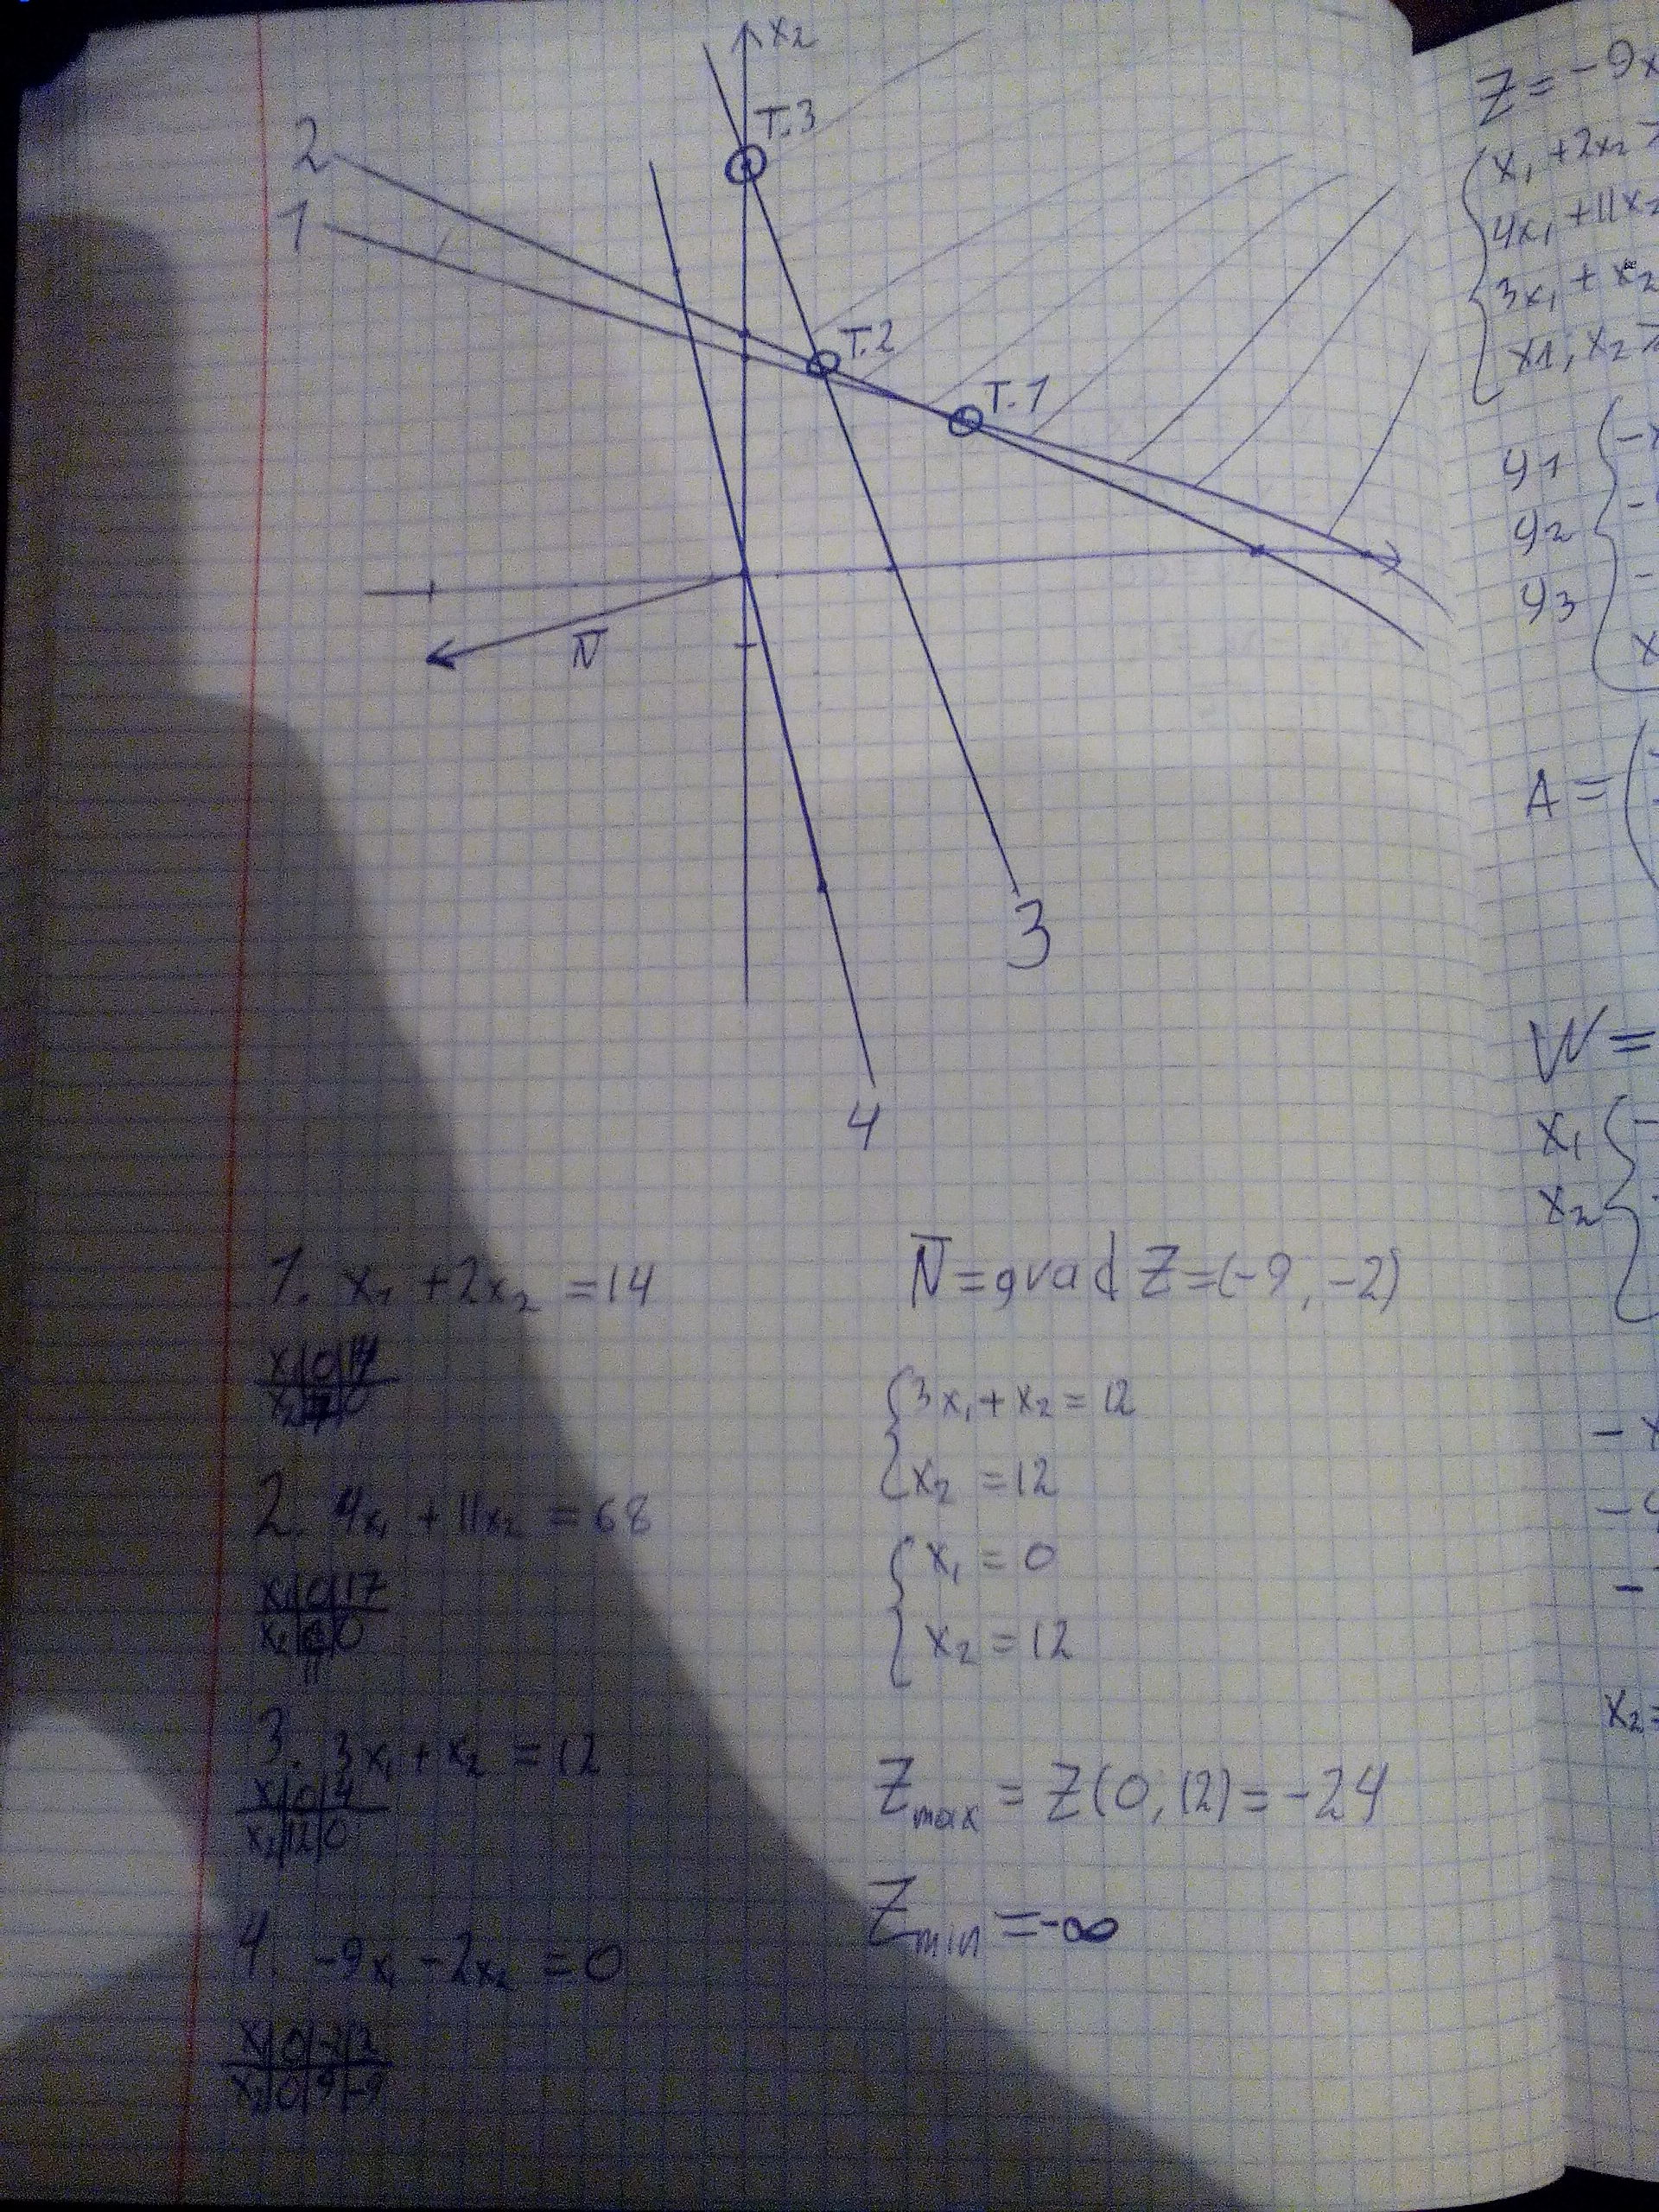 x2
T.3
2
1
T.2
T.1
N̅
3
4
1. x1 + 2x2 = 14
x1|0|14
x2|7|0
2. 4x1 + 11x2 = 68
x1|0|17
x2| |0
3. 3x1 + x2 = 12
x1|0|4
x2|12|0
4. -9x1 - 2x2 = 0
x1|0|-2|2
x2|0|9|-9
N̅ = grad Z = (-9, -2)
3x1 + x2 = 12
x2 = 12
x1 = 0
x2 = 12
Zmax = Z(0; 12) = -24
Zmin = -∞
Z = -9x
x1 + 2x2 ≥
4x1 + 11x2
3x1 + x2
x1; x2 ≥
y1 { -x
y2 -
y3 -
x
A = (
W =
x1 { -
x2
- x
-
-
x2 =